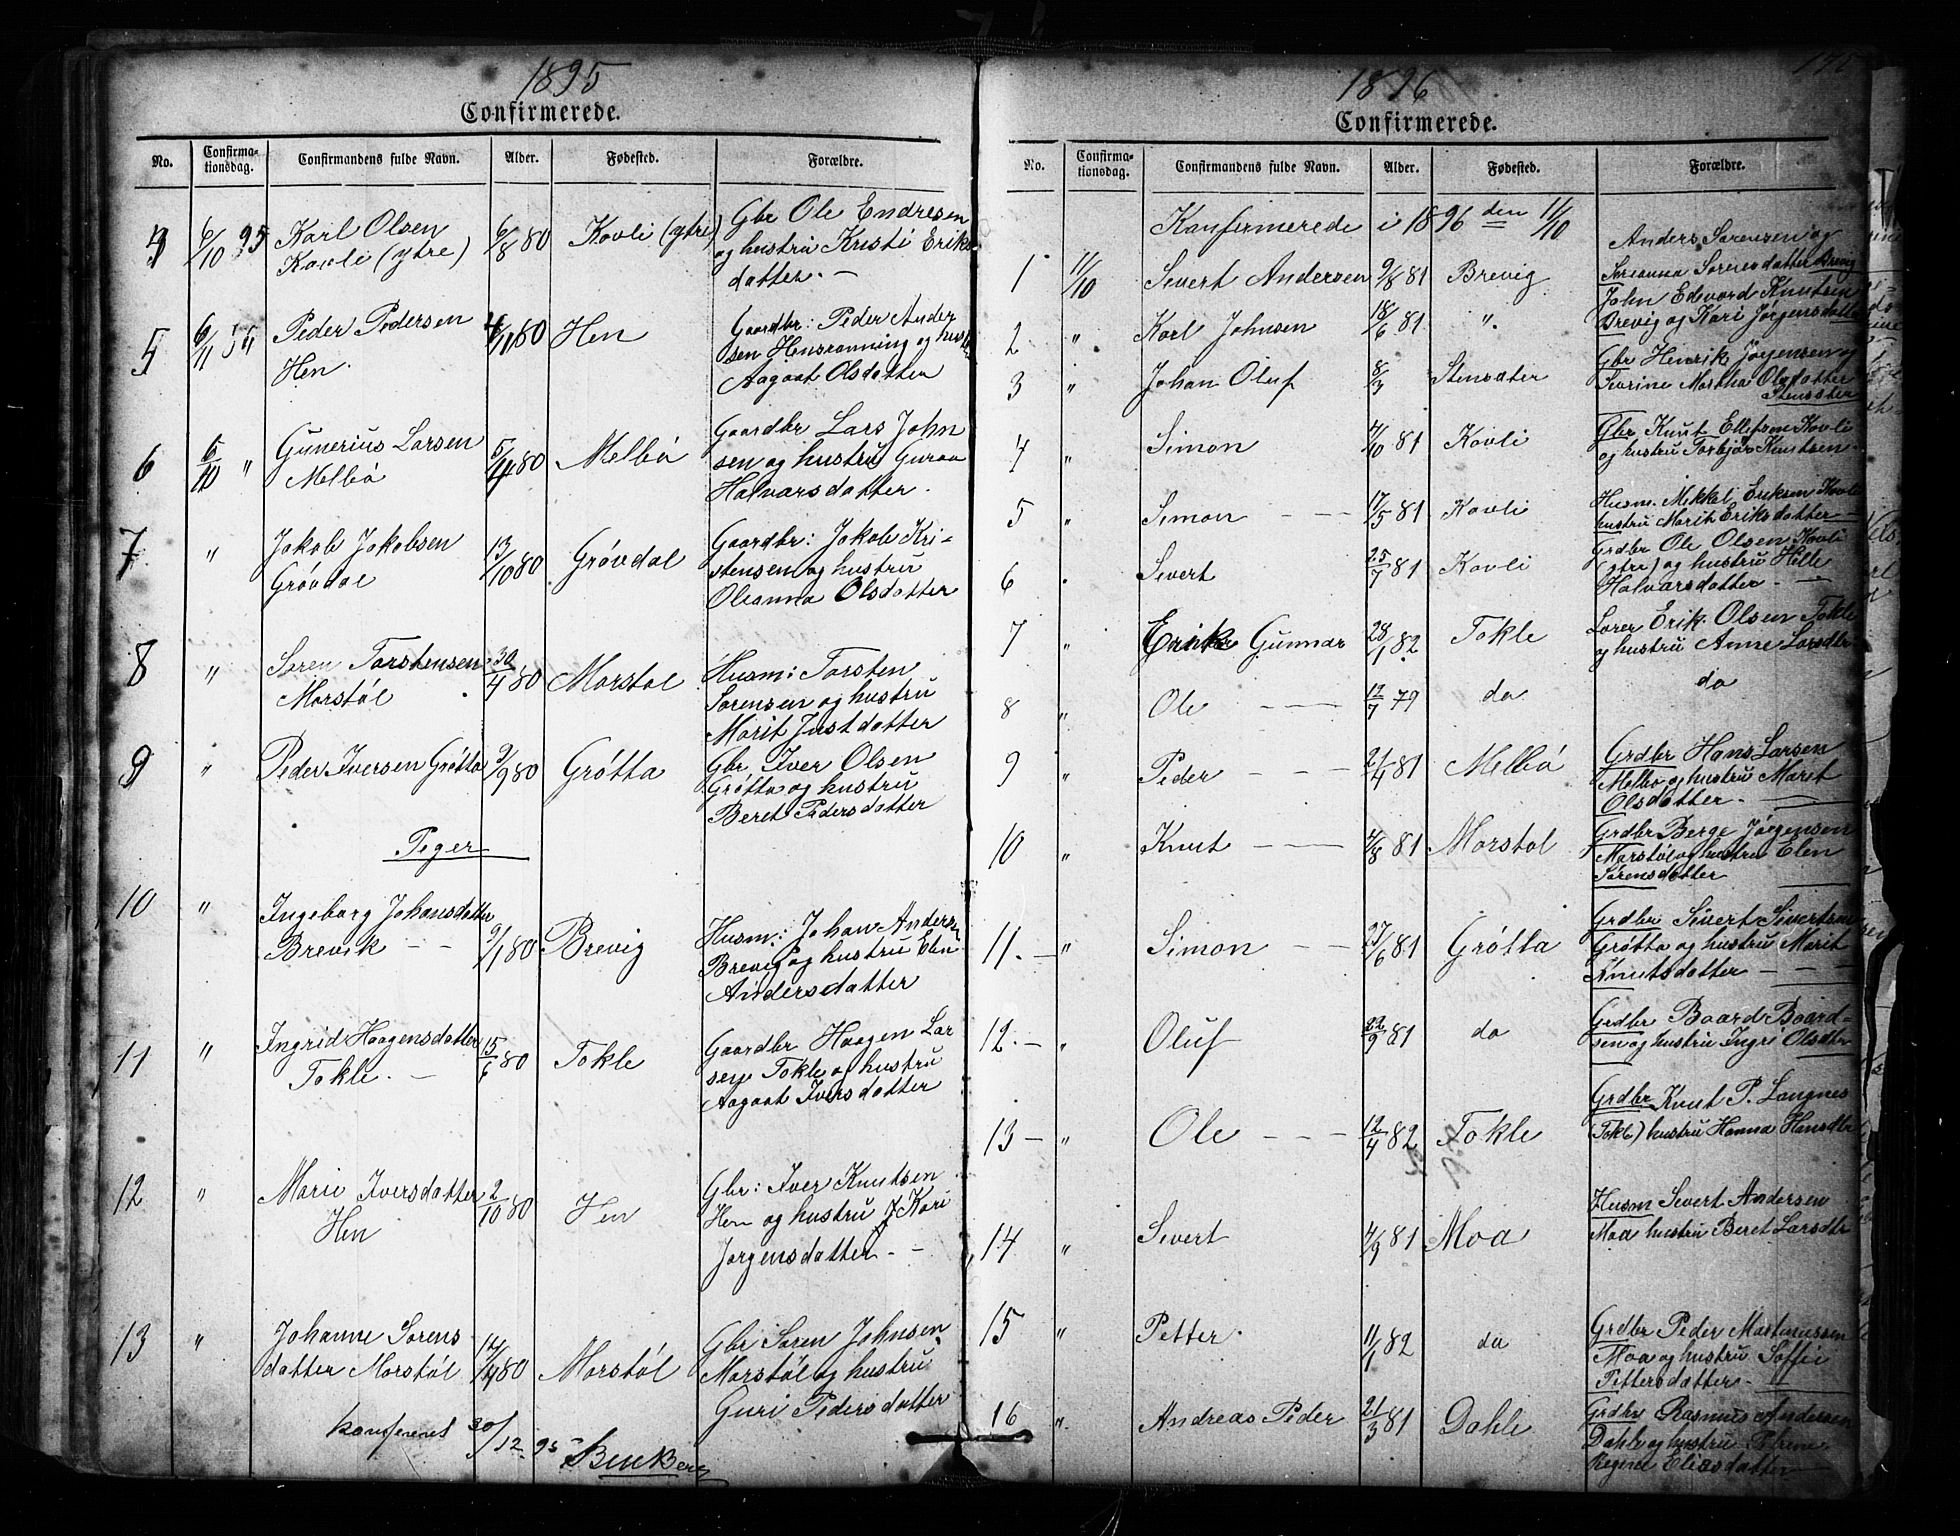 1895
Confirmerede.
No.
Confirma-
tionsdag.
Confirmandens fulde Navn.
Alder.
Fødested.
Forældre.
4
6/10 95
Karl Olsen
Kovli (ytre)
6/8 80
Kovli (ytre)
Gbr Ole Endresen
og hustru Kristi Eriks
datter. —
5
Peder Pedersen
Hen
Hen
Gaardbr: Peder Ander
sen Hensrønning og hustru
Aagaat Olsdatter
6
6/10 "
Gunerius Larsen
Melbø
5/4 80
Melbø
Gaardbr Lars John
sen og hustru Guroa
Halvarsdatter.
7
"
Jakob Jakobsen
Grövdal
13/10 80
Grövdal
Gaardbr: Jakob Kri-
stensen og hustru
Oleanna Olsdatter
8
"
Søren Torstensen
Morstöl
30/4 80
Morstøl
Husm: Torsten
Sørensen og hustru
Marit Justdatter
9
"
Peder Iversen Grötta
9/9 80
Grötta
Gbr Iver Olsen
Grötta og hustru
Beret Pedersdatter
Piger
10
"
Ingeborg Johansdatter
Brevik — —
9/1 80
Brevig
Husm: Johan Andersen
Brevig og hustru Elen
Andersdatter
11
"
Ingrid Haagensdatter
Tokle. —
15/6 80
Tokle
Gaardbr Haagen Lar
sen Tokle og hustru
Aagaat Iversdatter
12
"
Marie Iversdatter
Hen
2/10 80
Hen
Gbr: Iver Knutsen
Hen og hustru Kari
Jørgensdatter — —
13
"
Johanne Sørens
datter Morstöl
Morstöl
Gbr Søren Johnsen
Morstöl og hustru
Guri Pedersdatter
konfereret 30/12 95
1896
Confirmerede.
No.
Confirma-
tionsdag.
Confirmandens fulde Navn.
Alder.
Fødested.
Forældre.
Konfirmerede i 1896 den 11/10
1
11/10
Sivert Andersen
9/8 81
Brevig
Anders Sørensen og
Søreanna Sørensdatter Brevig
2
"
Karl Johnsen
18/6 81
".
John Edvard Knutsen
Brevig og Kari Jørgensdatter
3
"
Johan Oluf
8/3
Stensæter
Gbr Henrik Jørgensen og
Severine Martha Olsdatter
Stensæter
4
"
Simon
4/10 81
Kovli
Gbr Knut Ellefsen Kovli
og hustru Torbjør Knutsen
5
"
Simon — —
17/5 81
Kovli
Husm. Mikkel Eriksen Kovli
hustru Marit Eriksdatter —
6
"
Sivert
25/7 81
Kovli
Grdbr Ole Olsen Kovli
(ytre) og hustru Hille
Halvarsdatter. —
7
"
Erik Gunnar
28/1 82
Tokle
Lærer Erik Olsen Tokle
og hustru Anne Larsdtr
8
"
Ole — —
12/7 79
do
do
9
"
Peder — — —
21/4 81
Melbö
Grdbr Hans Larsen
Melbø og hustru Marit
Olsdatter. —
10
"
Knut — — —
4/8 81
Morstøl
Grdbr Berge Jørgensen
Morstöl og hustru Elen
Sørensdatter
11. —
"
Simon — —
27/6 81
Grötta
Grdbr Sivert Sivertsen
Grötta og hustru Marit
Knutsdatter — — —
12. —
"
Oluf
22/9 81
do
Grdbr Baard Baard-
sen og hustru Ingri Olsdtr
13 —
"
Ole — — —
12/4 82
Tokle
Grdbr Knut P. Langnes
(Tokle) hustru Hanna Hansdtr
14
"
Sivert
4/9 81
Moa
Husm Sivert Andersen
Moa hustru Beret Larsdtr
15
"
Petter.
11/1 82
do
Grdbr Peder Martinussen
Moa og hustru Soffie
Pettersdatter —
16
"
Andreas Peder
21/3 81
Dahle
Grdbr Rasmus Andersen
Dahle og hustru
Regine Eliasdatter